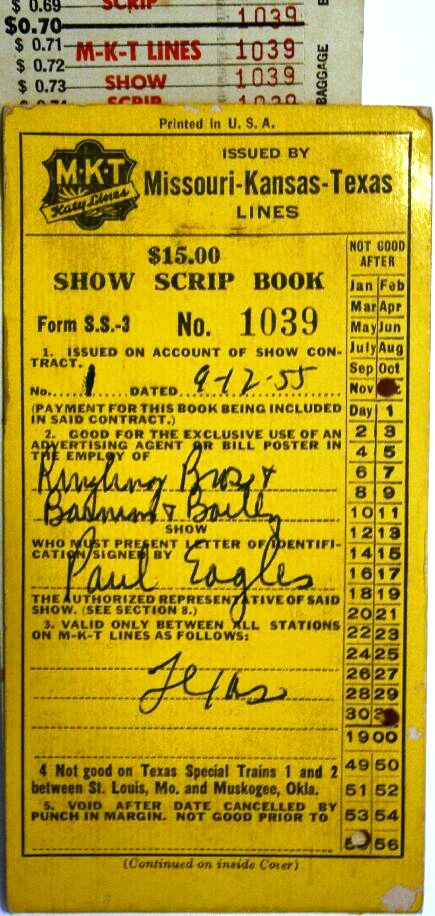 $ 0.69 SCRIP
$0.70 1039
$ 0.71 M-K-T LINES 1039
$ 0.72
$ 0.73 SHOW 1039
SCRIP 1039
BAGGAGE
Printed in U. S. A.
M·K·T
Katy Lines
ISSUED BY
Missouri-Kansas-Texas
LINES
$15.00
SHOW SCRIP BOOK
Form S.S.-3 No. 1039
1. ISSUED ON ACCOUNT OF SHOW CON-
TRACT.
No. 1 DATED 9-12-55
(PAYMENT FOR THIS BOOK BEING INCLUDED
IN SAID CONTRACT.)
2. GOOD FOR THE EXCLUSIVE USE OF AN
ADVERTISING AGENT OR BILL POSTER IN
THE EMPLOY OF
Ringling Bros &
Barnum & Bailey
SHOW
WHO MUST PRESENT LETTER OF IDENTIFI-
CATION SIGNED BY
Paul Eagles
THE AUTHORIZED REPRESENTATIVE OF SAID
SHOW. (SEE SECTION 8.)
3. VALID ONLY BETWEEN ALL STATIONS
ON M-K-T LINES AS FOLLOWS:
Texas
4 Not good on Texas Special Trains 1 and 2
between St. Louis, Mo. and Muskogee, Okla.
5. VOID AFTER DATE CANCELLED BY
PUNCH IN MARGIN. NOT GOOD PRIOR TO
(Continued on inside Cover)
NOT GOOD
AFTER
Jan Feb
Mar Apr
May Jun
July Aug
Sep Oct
Nov
Day 1
2 3
4 5
6 7
8 9
10 11
12 13
14 15
16 17
18 19
20 21
22 23
24 25
26 27
28 29
30
19 00
49 50
51 52
53 54
56